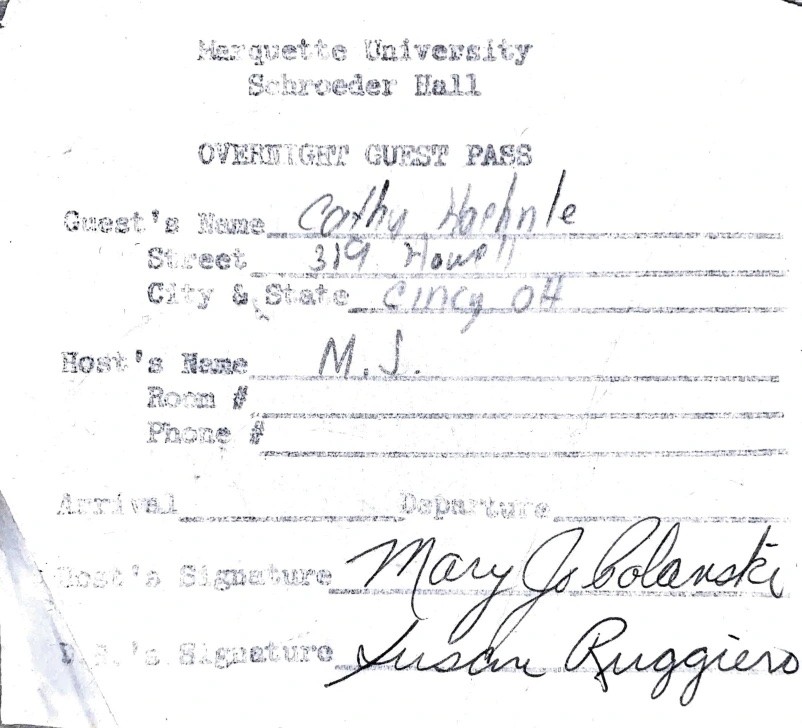 Marquette University
Schroeder Hall
OVERNIGHT GUEST PASS
Guest's Name Cathy Haehnle
Street 319 Howell
City & State Cincy OH
Host's Name M.J.
Room #
Phone #
Arrival Departure
Host's Signature Mary Jo Colanski
R.A.'s Signature Susan Ruggiero